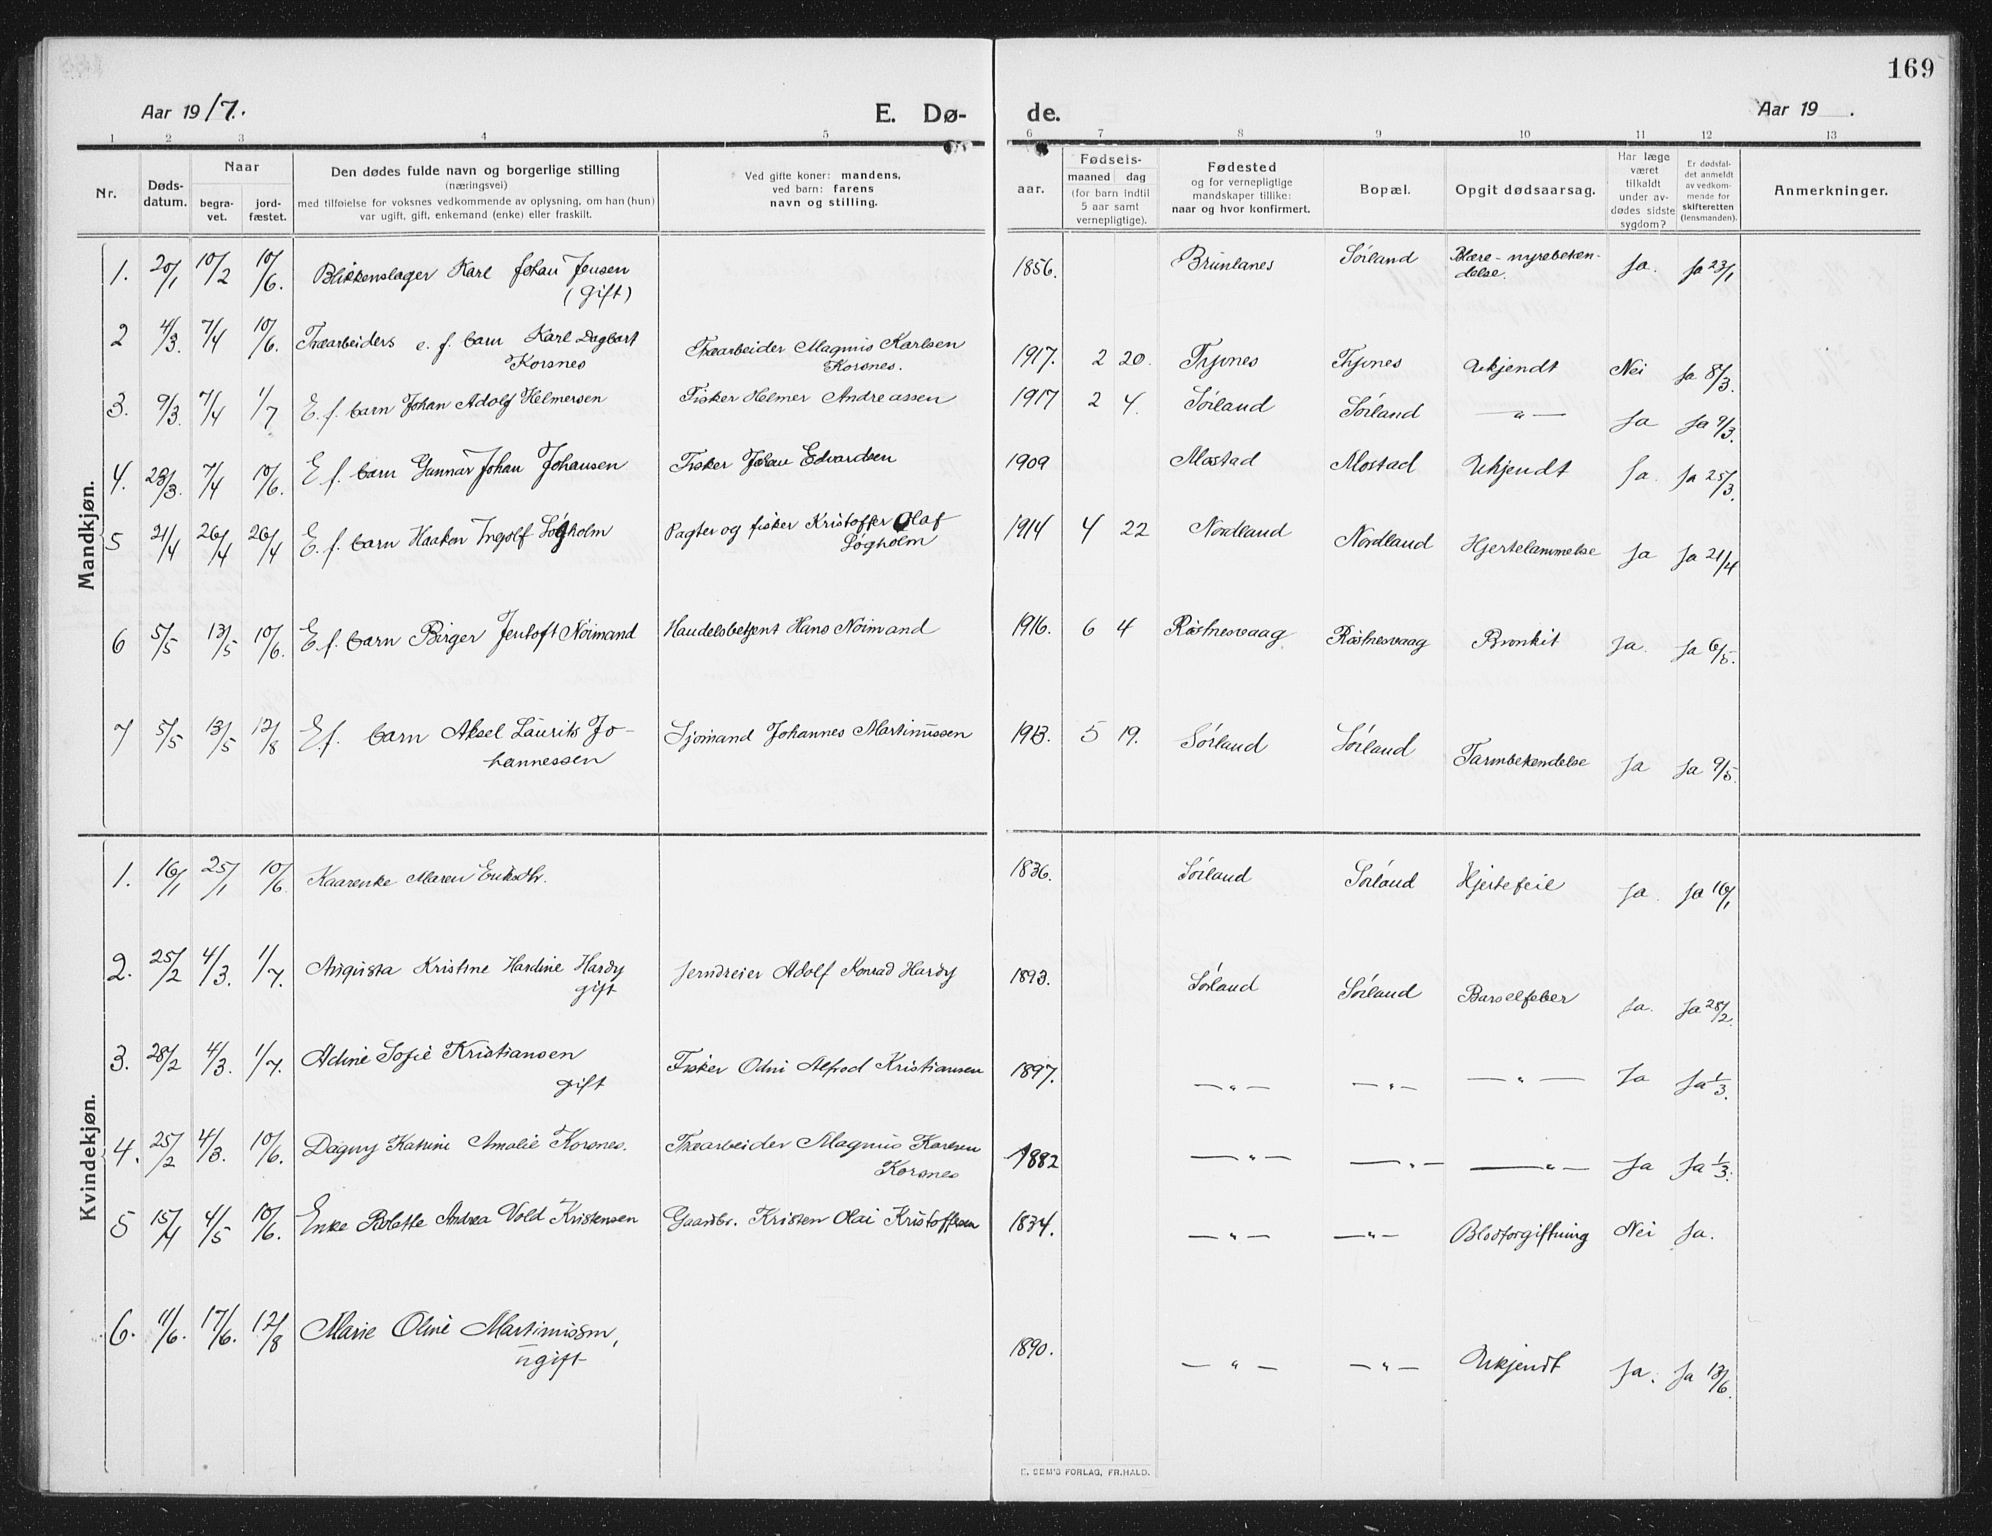 169
Aar 1917.
E. Dø-
de.
Aar 19 .
1 2 3 4 5 6 7 8 9 10 11 12 13
Nr.
Døds-
datum.
Naar
begra-
vet.
jord-
fæstet.
Den dødes fulde navn og borgerlige stilling
(næringsvei)
med tilføielse for voksnes vedkommende av oplysning, om han (hun)
var ugift, gift, enkemand (enke) eller fraskilt.
Ved gifte koner: mandens,
ved barn: farens
navn og stilling.
aar.
Fødsels-
maaned dag
(for barn indtil
5 aar samt
vernepligtige).
Fødested
og for vernepligtige
mandskaper tillike:
naar og hvor konfirmert.
Bopæl.
Opgit dødsaarsag.
Har læge
været
tilkaldt
under av-
dødes sidste
sygdom?
Er dødsfal-
det anmeldt
av vedkom-
mende for
skifteretten
(lensmanden).
Anmerkninger.
Mandkjøn.
1. 20/1 10/2 10/6. Blikkenslager Karl Johan Jensen 1856. Brunlanes Sørland Blære-nyrebeten- Ja. Ja 23/1
(gift) delse.
2 4/3. 7/4 10/6. Træarbeiders e. f. barn Karl Dagbart Træarbeider Magnus Karlsen 1917. 2 20. Tyvnes Tyvnes Ukjendt Nei Ja 8/3.
Korsnes Korsnes.
3. 9/3. 7/4 1/7 E. f. barn Johan Adolf Helmersen Fisker Helmer Andreassen 1917 2 4. Sørland Sørland — " — Ja Ja 9/3.
4. 23/3. 7/4 10/6. E. f. barn Gunnar Johan Johansen Fisker Johan Edvardsen 1909 Mostad Mostad Ukjendt Ja. Ja 25/3.
5 21/4 26/4 26/4 E. f. barn Haakon Ingolf Søgholm Pagter og fisker Kristoffer Olaf 1914 4 22 Nordland Nordland Hjertelammelse Ja Ja 21/4
Søgholm
6 5/5 13/5 10/6. E. f. barn Birger Jentoft Noimand Handelsbetjent Hans Noimand 1916. 6 4 Røstnesvaag Røstnesvaag Bronkit Ja. Ja 6/5.
7 5/5 13/5 12/8 E f. barn Aksel Laurits Jo- Sjømand Johannes Martinussen 1913. 5 19. Sørland Sørland Tarmbetendelse Ja Ja 9/5.
hannessen
Kvindekjøn.
1. 16/1 25/1 10/6. Kaarenke Maren Eriksdtr. 1836. Sørland Sørland Hjertefeil Ja. Ja 16/1
2. 25/2 4/3. 1/7. Augusta Kristine Hardine Hardy Jerndreier Adolf Konrad Hardy 1893. Sørland Sørland Barselfeber Ja. Ja 28/2.
gift
3. 28/2 4/3. 1/7. Adine Sofie Kristiansen Fisker Odin Alfred Kristiansen 1897. — " — — " — — " — Ja Ja 1/3.
gift
4. 25/2 4/3. 10/6. Dagny Katrine Amalie Korsnes. Træarbeider Magnus Karlsen 1882 — " — — " — — " — Ja Ja 1/3.
Korsnes
5 15/4 4/5 10/6. Enke Bolette Andrea Vold Kristensen Gaardbr. Kristen Olai Kristoffersen 1834. — " — — " — Blodforgiftning Nei Ja.
6. 11/6. 17/6. 12/8 Marie Oline Martinussen, 1890. — " — — " — Ukjendt Ja. Ja 13/6.
ugift
E. SEM'S FORLAG, FR.HALD.